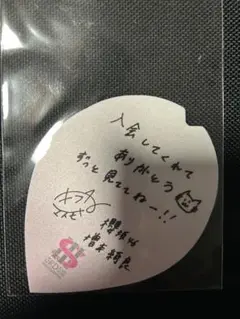 入会してくれて
ありがとう
ずっと見ててねー!!
櫻坂46
増本綺良